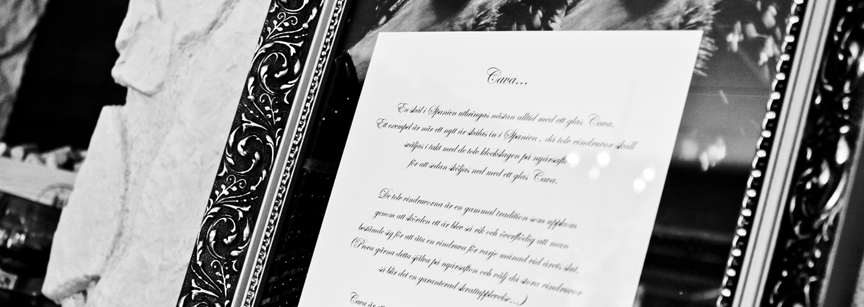 Cava...
En skål i Spanien utbringas nästan alltid med ett glas Cava.
Ett exempel är när ett nytt år skålas in i Spanien, då tolv vindruvor skall
sväljas i takt med de tolv klockslagen på nyårsafton
för att sedan sköljas ned med ett glas Cava.
De tolv vindruvorna är en gammal tradition som uppkom
genom att skörden ett år blev så rik och överflödig att man
bestämde sig för att äta en vindruva för varje månad vid årets slut.
(Prova gärna detta själva på nyårsafton och välj då stora vindruvor
så blir det en garanterad skrattupplevelse...)
Cava är